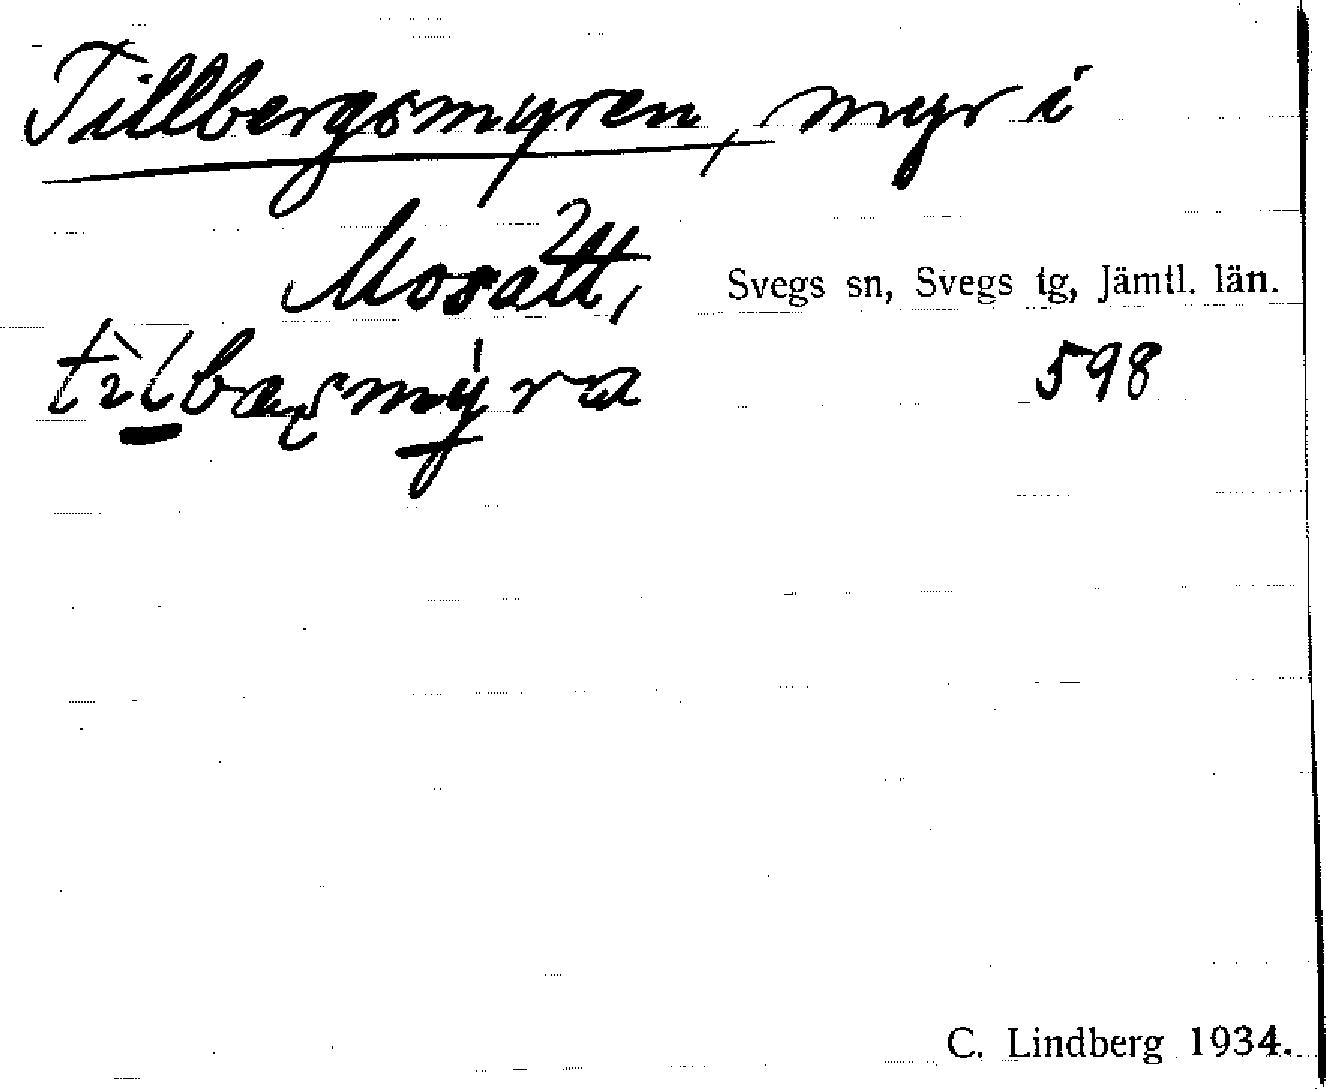 Tillbergsmyren, myr i
Mosätt, Svegs sn, Svegs tg, Jämtl. län.
598
C. Lindberg 1934.